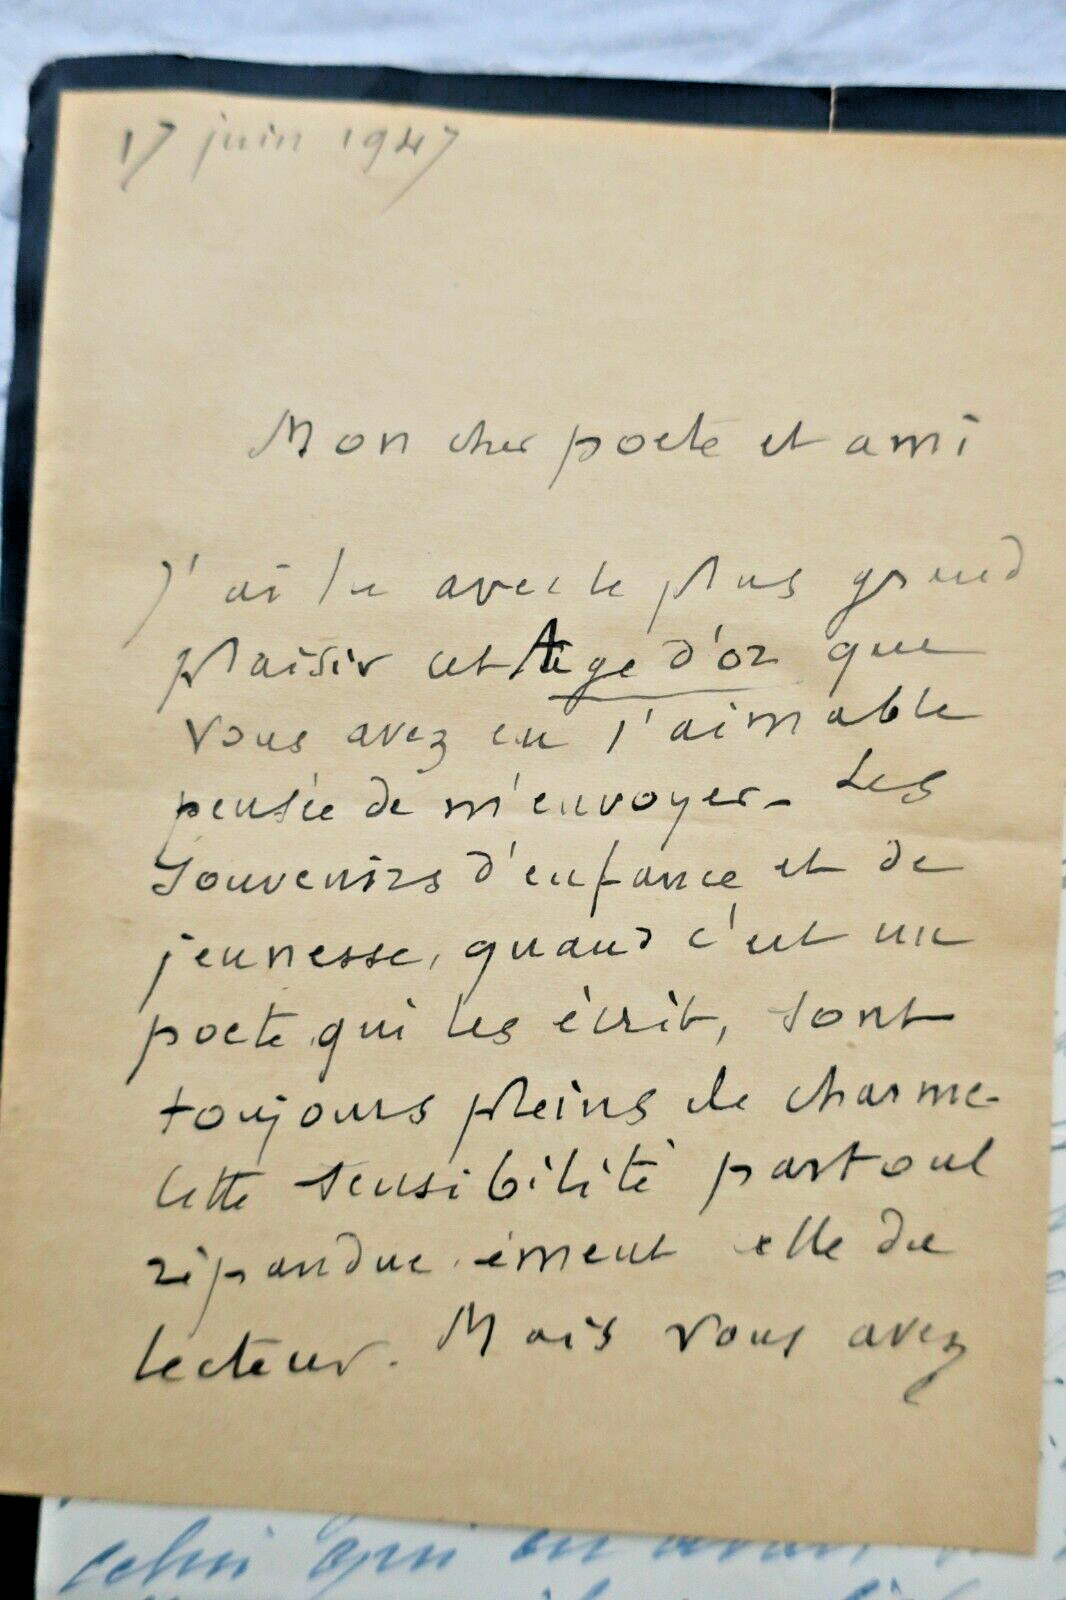 17 juin 1947
Mon cher poete et ami
J'ai lu avec le plus grand
plaisir cet Age d'or que
vous avez eu l'aimable
pensée de m'envoyer. Les
souvenirs d'enfance et de
jeunesse, quand c'est un
poete qui les écrit, sont
toujours pleins de charme.
Cette sensibilité partout
répandue émeut elle du
lecteur. Mais vous avez
celui qui en avait